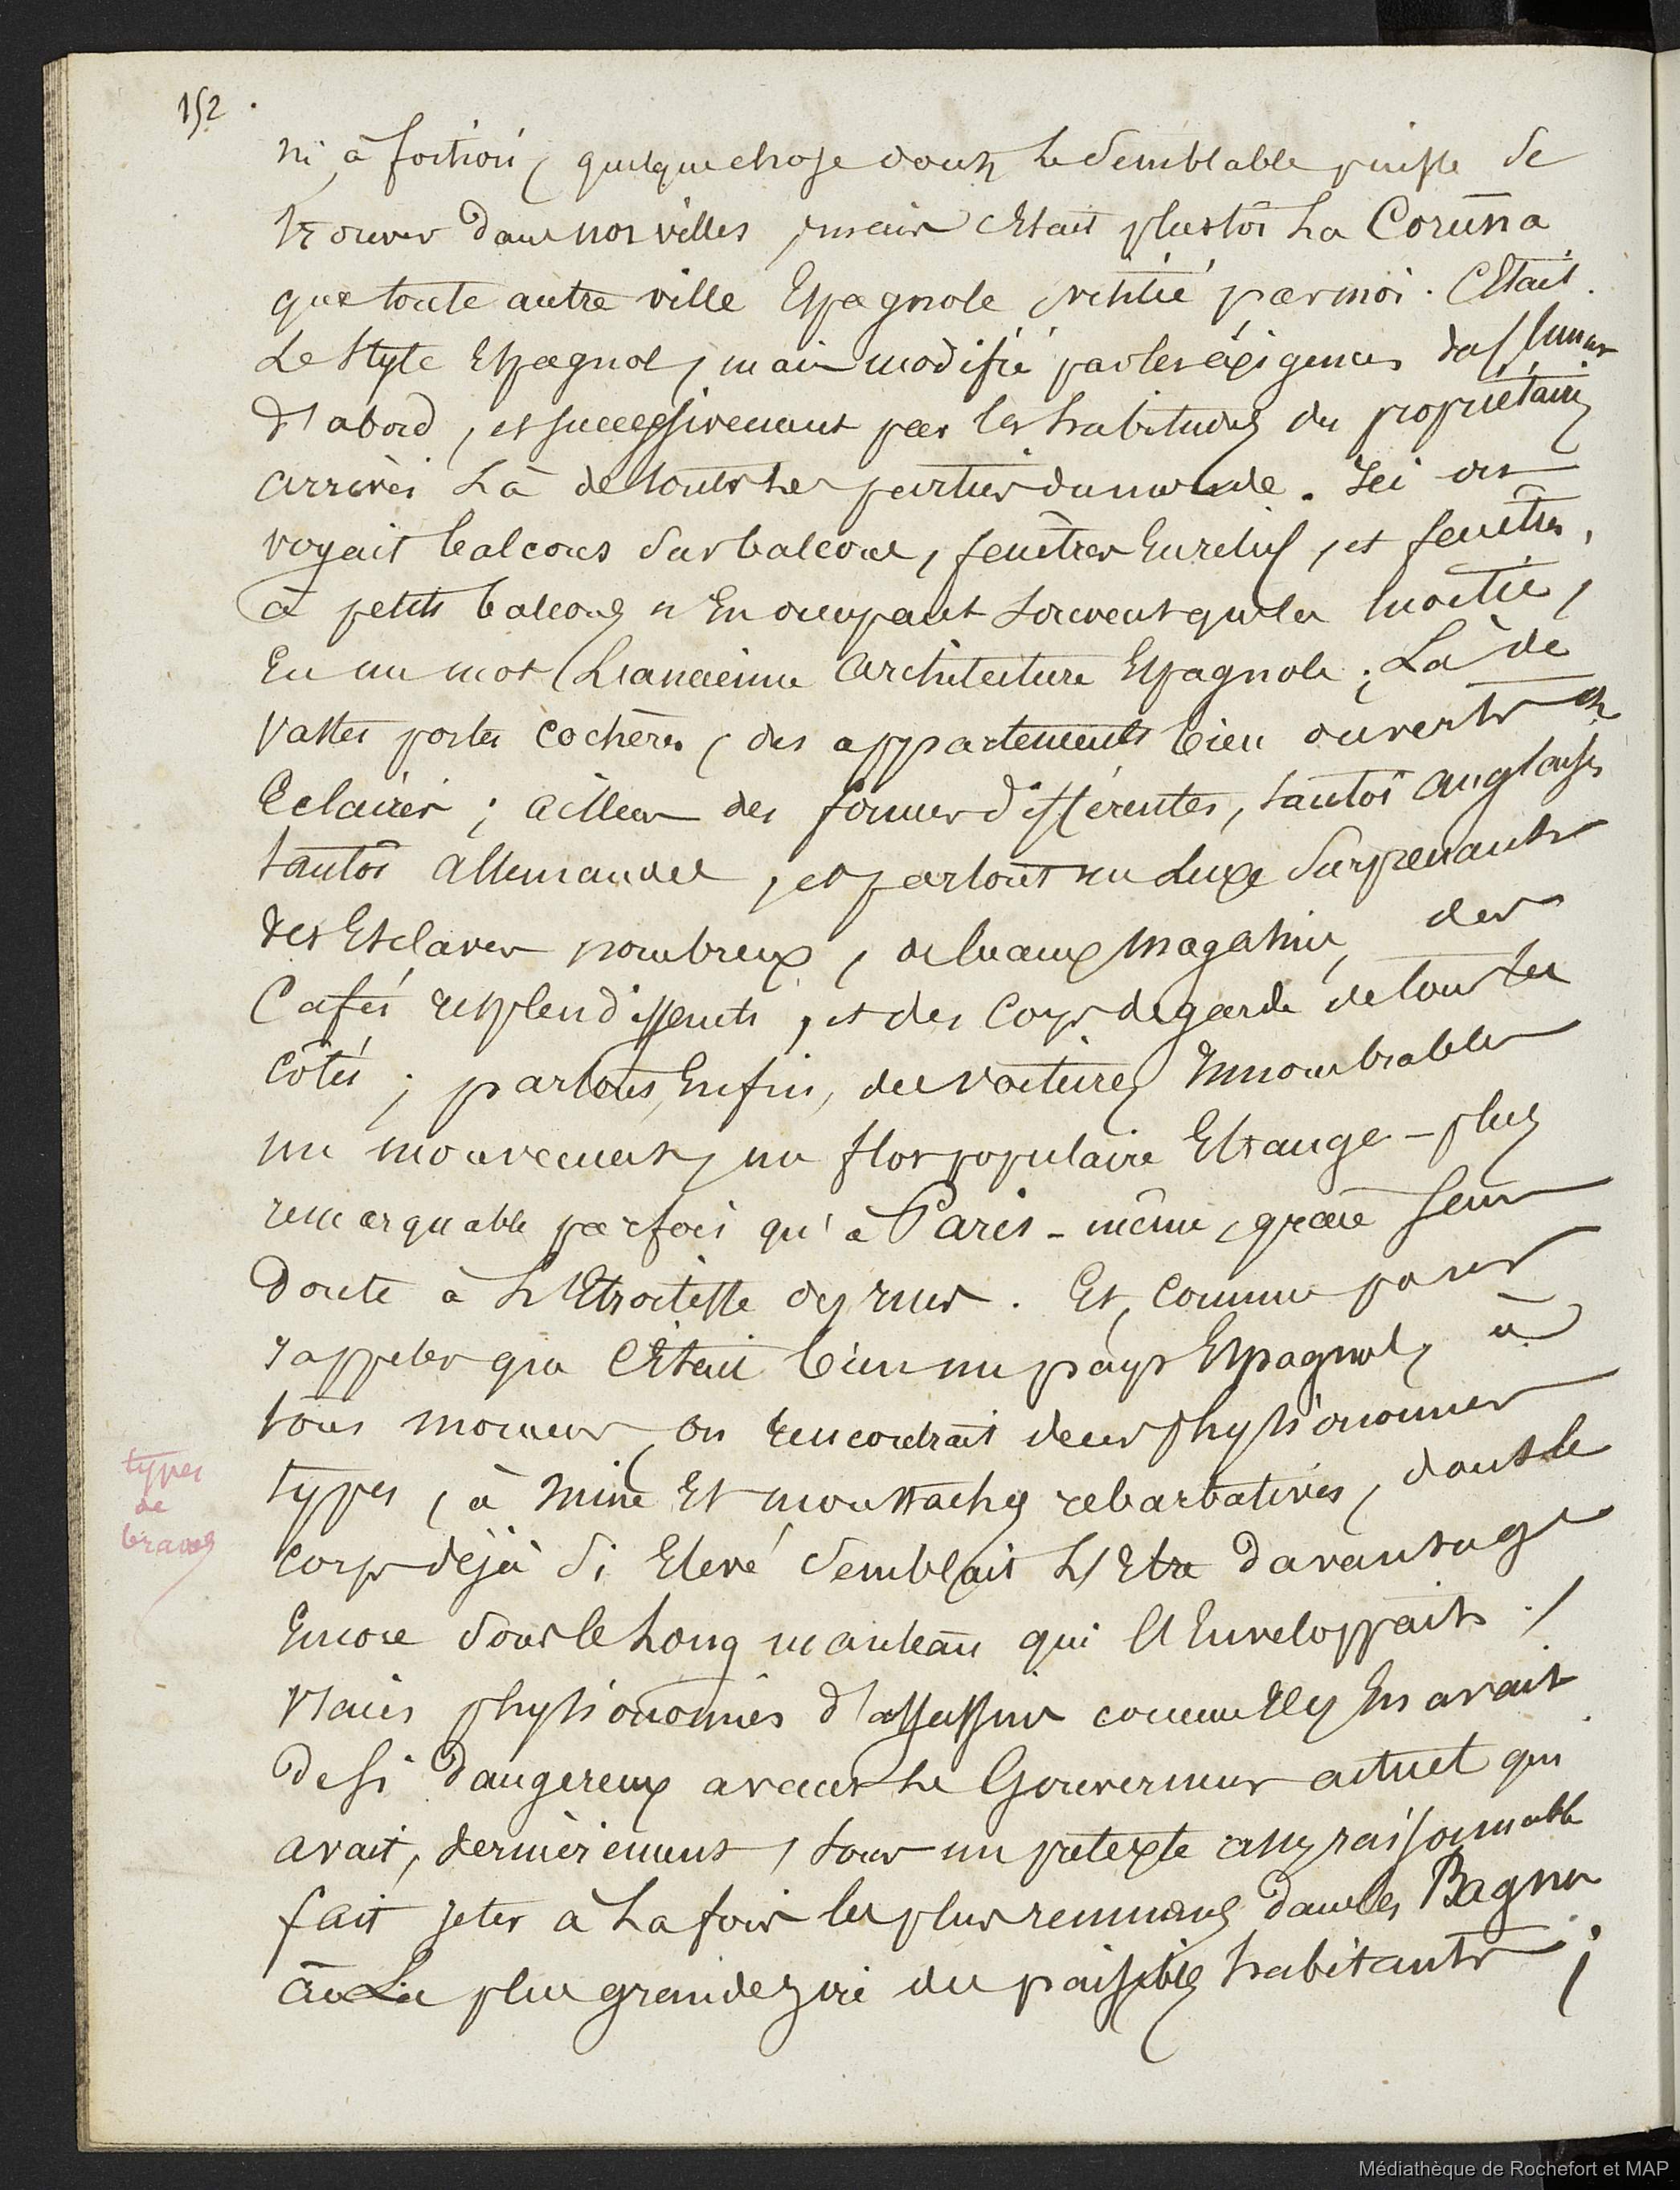 152
ni, à fortiori, quelque chose dont le semblable puisse se
trouver dans nos villes, mais c'Etait plustôt La Coruña
que toute autre ville Espagnole visitée par moi. C'Etait
Le style Espagnol, mais modifié par les éxigences
d'abord, et successivement par les habitudes des propriétaires
arrivés Là de toutes les parties du monde. Ici on
voyait balcons sur balcons, fenêtres En relief, et fenêtres,
à petits balcons n'En occupant souvent que la moitié,
En un mot L'ancienne Architecture Espagnole; Là de
vastes portes cochères, des appartements bien ouverts et
Eclairés; ailleurs des formes différentes, tantôt anglaises
tantôt allemandes, et partout un Luxe surprenant
des Esclaves nombreux, de beaux magasins, des
Cafés resplendissents, et des Corps de garde de tous les
côtés; partout, Enfin, des voitures Innombrables
un mouvement, un flot populaire Etrange - plus
remarquable parfois qu'à Paris - même, grâce sans
Doute à L'Etroitesse des rues. Et, comme pour
rappeler que C'Etait bien un pays Espagnol, à
tous momens, on rencontrait des physionomies
types, à mine Et moustaches rebarbatives, dont le
corps déjà si Elevé semblait L'Etre Davantage
Encore sous le Long manteau qui L'Enveloppait ./
Vraies physionomies d'assassins comme Il y En avait
de si dangereux avant Le Gouverneur actuel qui
avait, dernièrement, sous un pretexte assez raisonnable
fait jeter à La fois les plus remuans dans les Bagnes
à La plus grande joie des paisibles habitants;
types
de
braves
Médiathèque de Rochefort et MAP